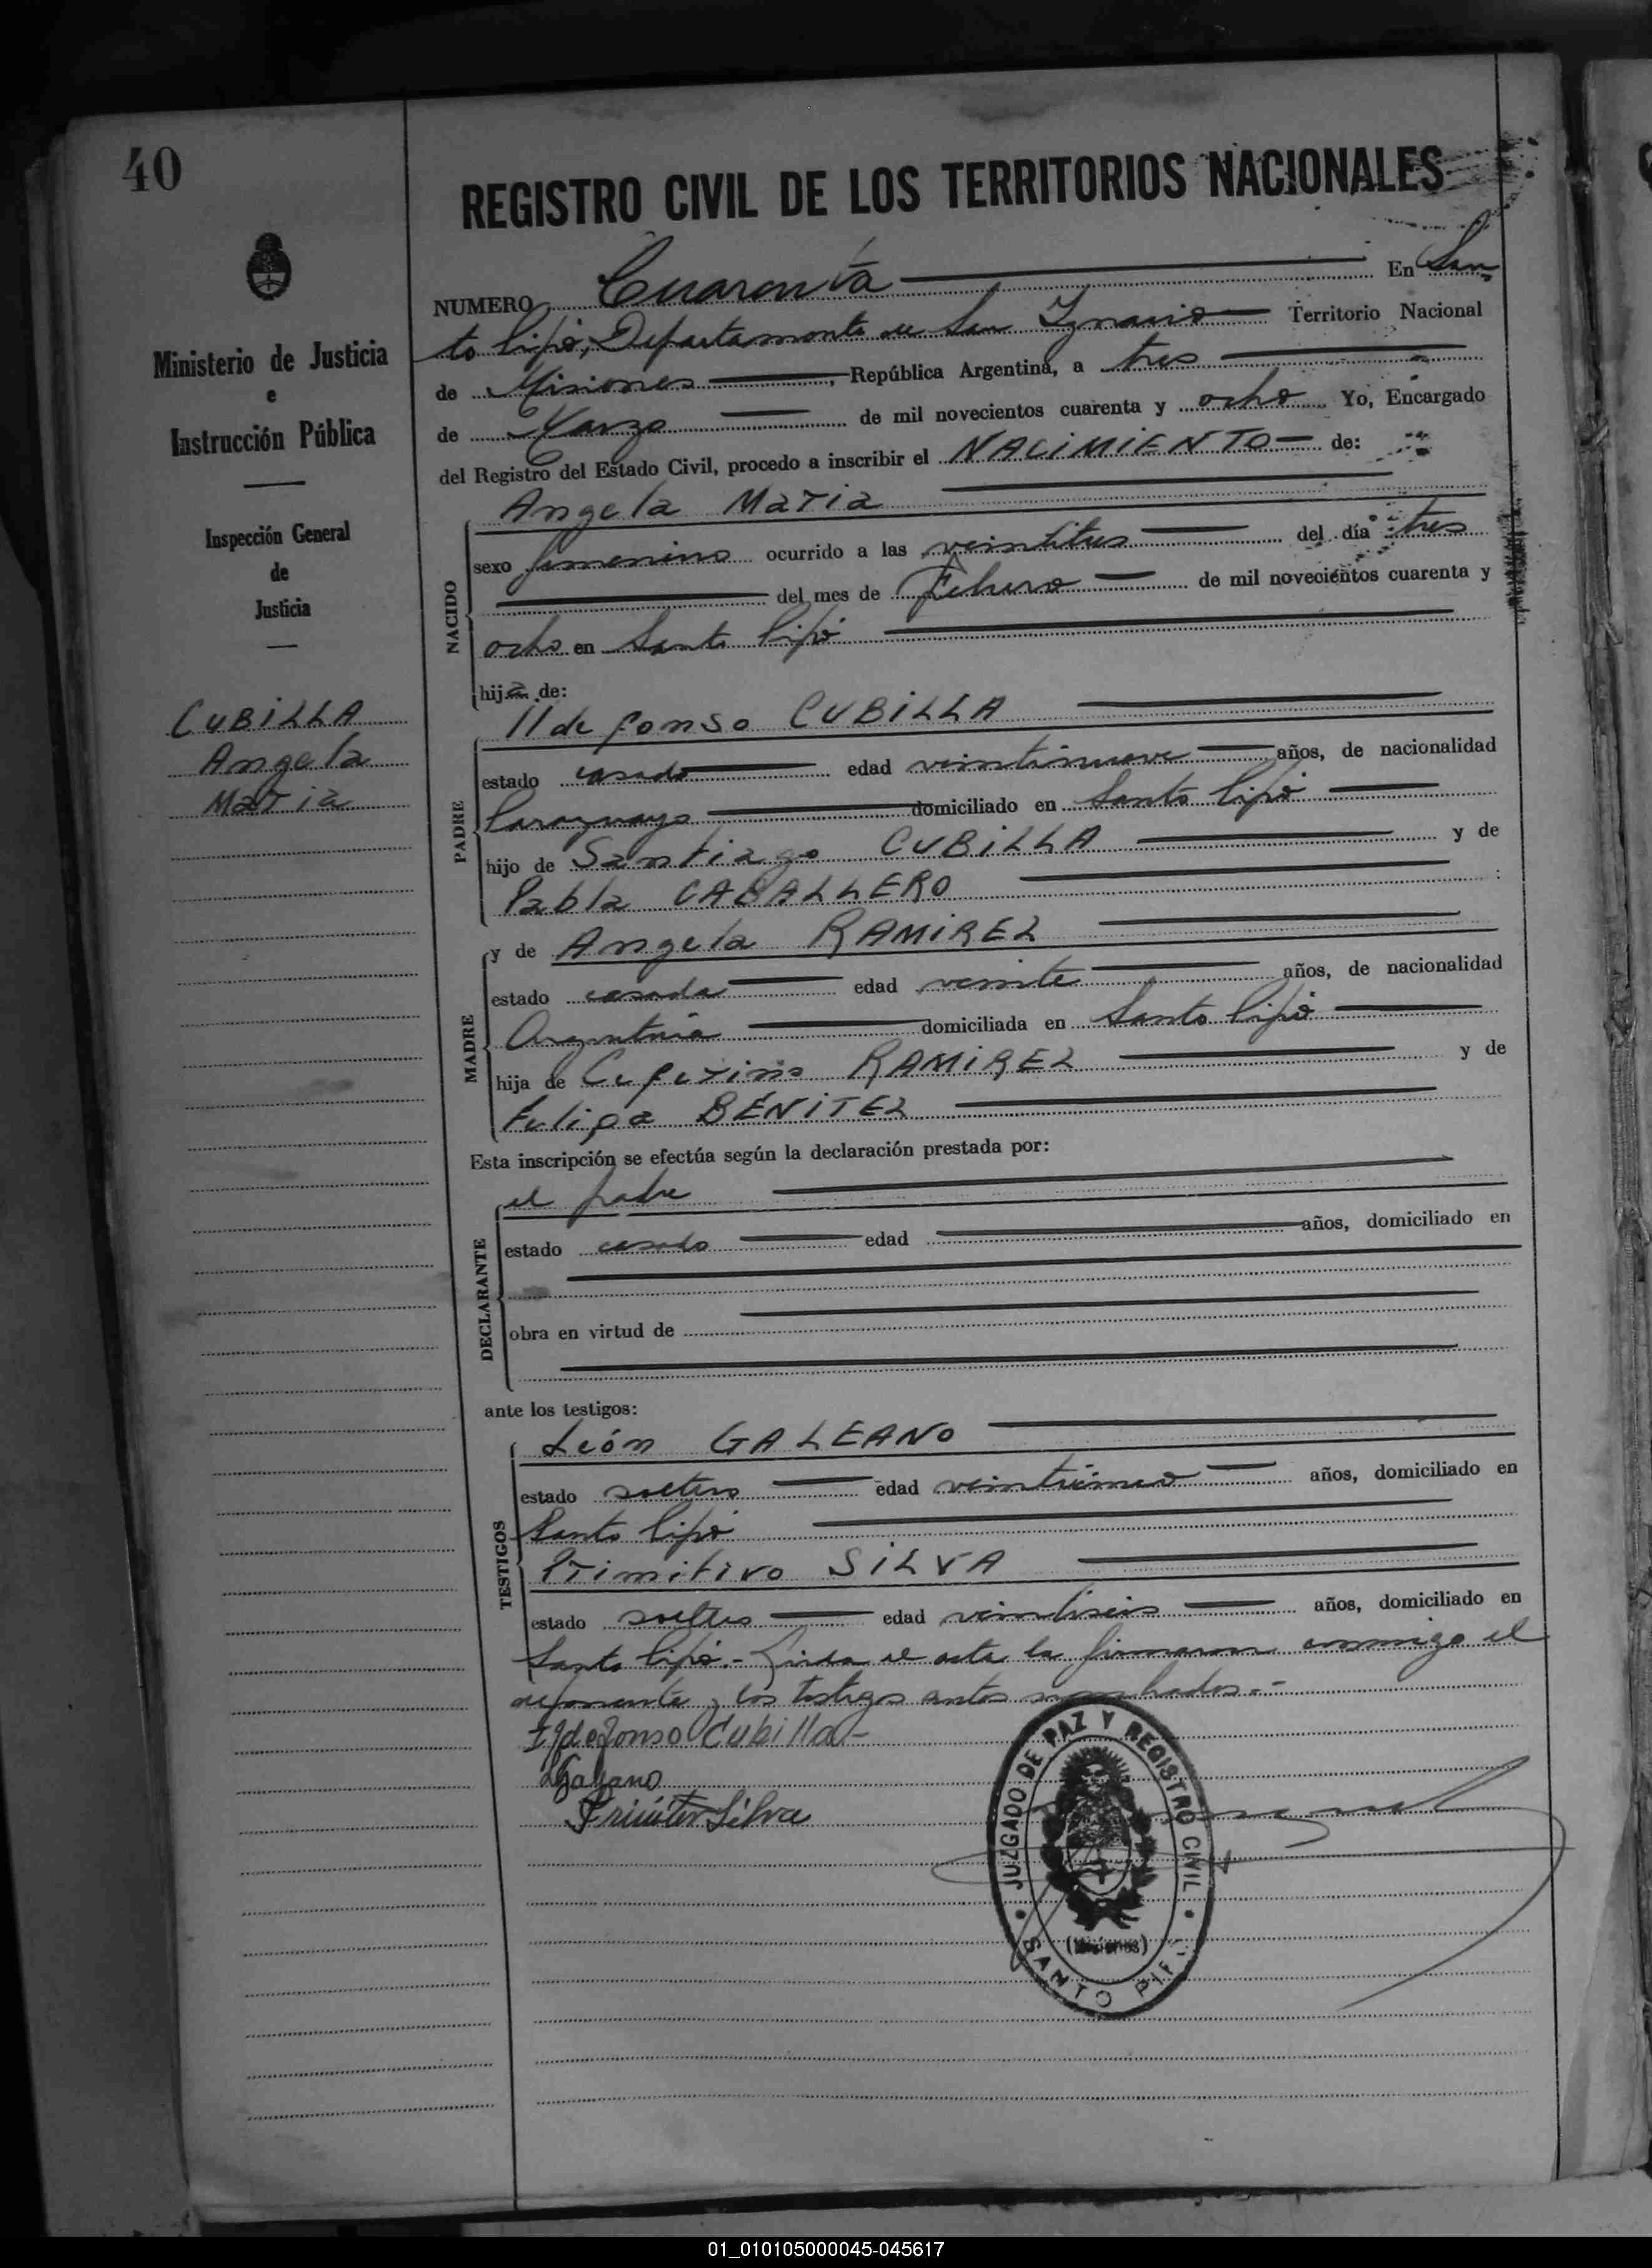 40
REGISTRO CIVIL DE LOS TERRITORIOS NACIONALES
Ministerio de Justicia
e
Instrucción Pública
Inspección General
de
Justicia
CUBILLA
Angela
Maria
NUMERO Cuarenta En San
to Pipó, Departamento de San Ignacio Territorio Nacional
de Misiones, República Argentina, a tres
de Marzo de mil novecientos cuarenta y ocho Yo, Encargado
del Registro del Estado Civil, procedo a inscribir el NACIMIENTO de:
NACIDO
Angela Maria
sexo femenino ocurrido a las veintitres del día tres
del mes de Febrero de mil novecientos cuarenta y
ocho en Santo Pipó
hija de:
PADRE
Ildefonso CUBILLA
estado casado edad veintinueve años, de nacionalidad
Paraguayo domiciliado en Santo Pipó
hijo de Santiago CUBILLA y de
Pabla CABALLERO
MADRE
y de Angela RAMIREZ
estado casada edad veinte años, de nacionalidad
Argentina domiciliada en Santo Pipó
hija de Ceferino RAMIREZ y de
Felipa BENITEZ
Esta inscripción se efectúa según la declaración prestada por:
DECLARANTE
el padre
estado casado edad años, domiciliado en
obra en virtud de
ante los testigos:
TESTIGOS
León GALEANO
estado soltero edad veinticinco años, domiciliado en
Santo Pipó
Primitivo SILVA
estado soltero edad veintiseis años, domiciliado en
Santo Pipó.- Leida el acta la firmaron conmigo el
deponente y los testigos antes nombrados.-
Ildefonso Cubilla
LGaleano
Silva
JUZGADO DE PAZ Y REGISTRO CIVIL
(Misiones)
SANTO PIPÓ
01_010105000045-045617